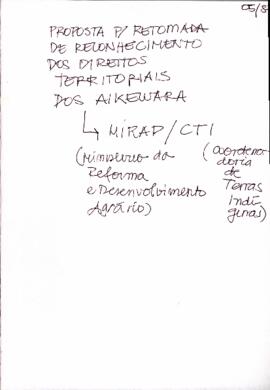 05/8
PROPOSTA P/ RETOMADA
DE RECONHECIMENTO
DOS DIREITOS
TERRITORIAIS
DOS AIKEWARA
↳ MIRAD/CTI
(Ministério da
Reforma
e Desenvolvimento
Agrário)
(Coordenadoria
de
Terras
Indí
genas)